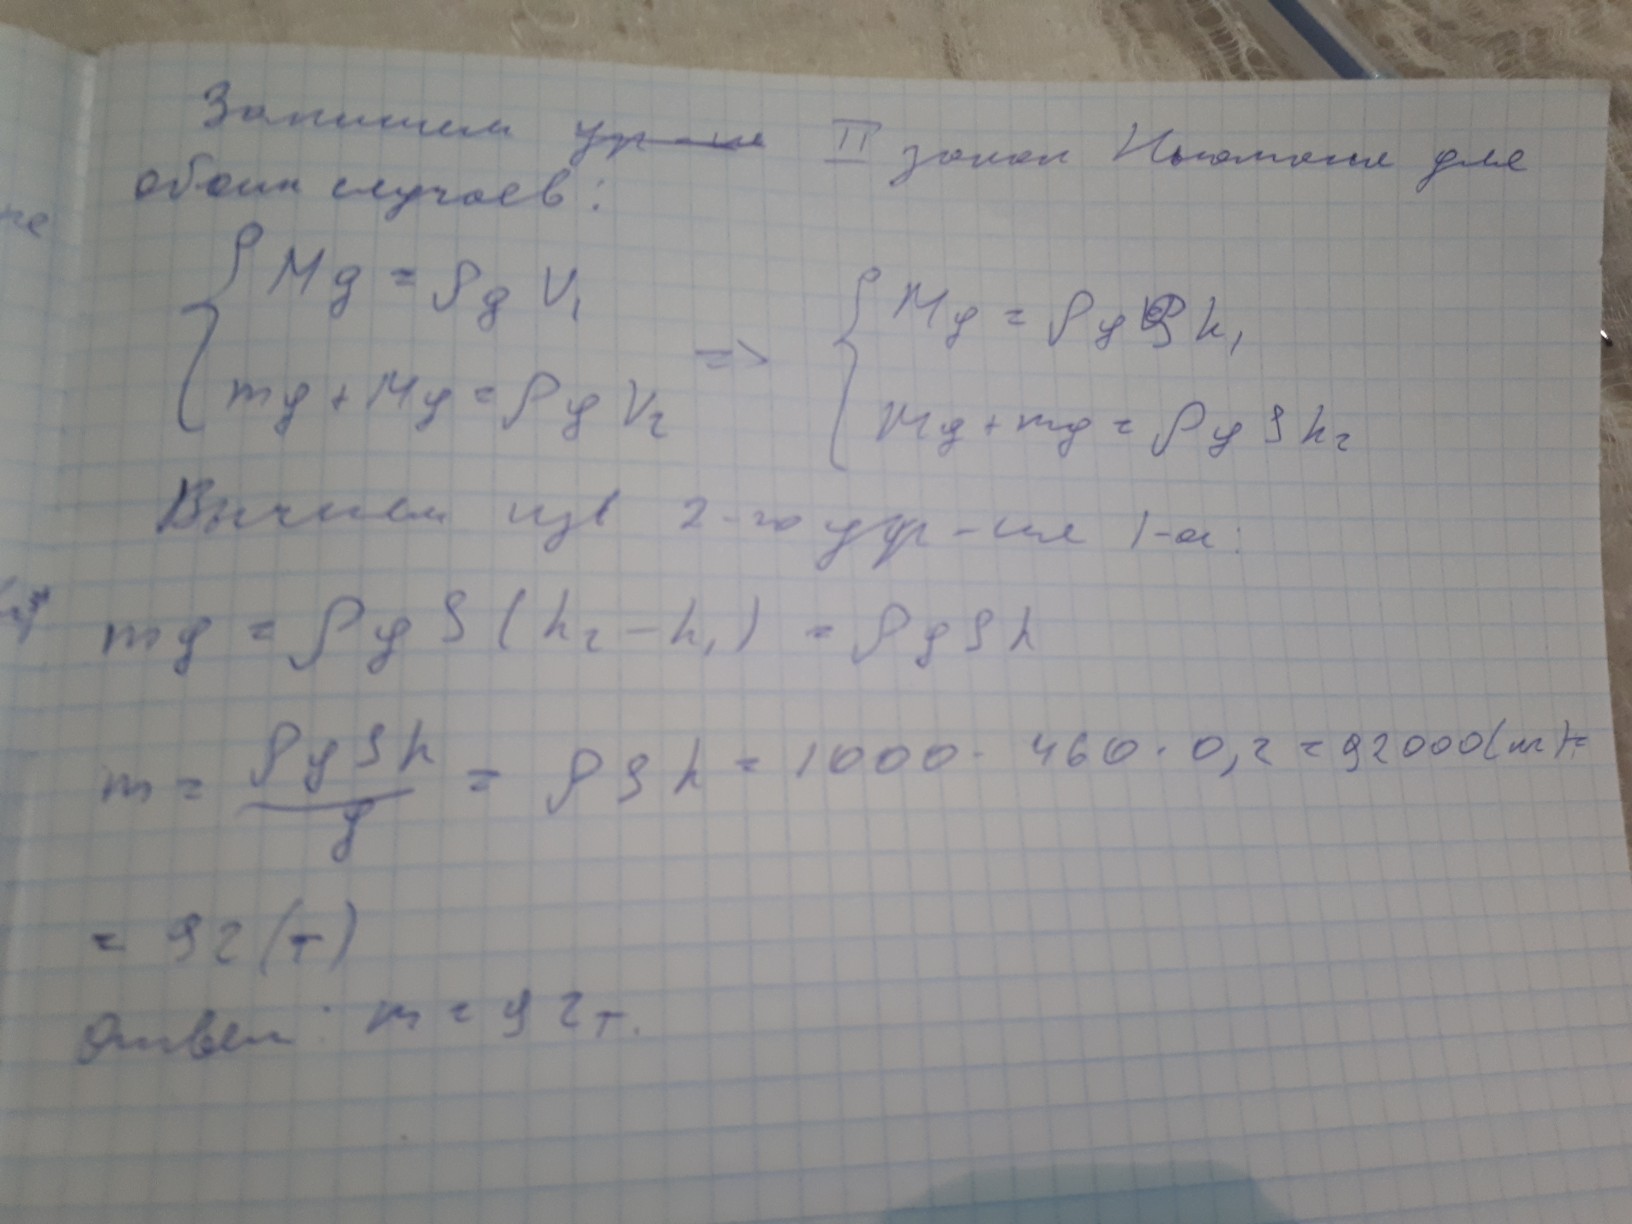 Запишем ур-ние II закон Ньютона для
обоих случаев:
Mg = ρgV₁
mg + Mg = ρgV₂
=>
Mg = ρgSh₁
Mg + mg = ρgSh₂
Вычтем из 2-го ур-ния 1-ое:
mg = ρgS(h₂ - h₁) = ρgSh
m = ρgSh/g = ρSh = 1000 · 460 · 0,2 = 92000(кг) =
= 92(т)
Ответ: m = 92т.